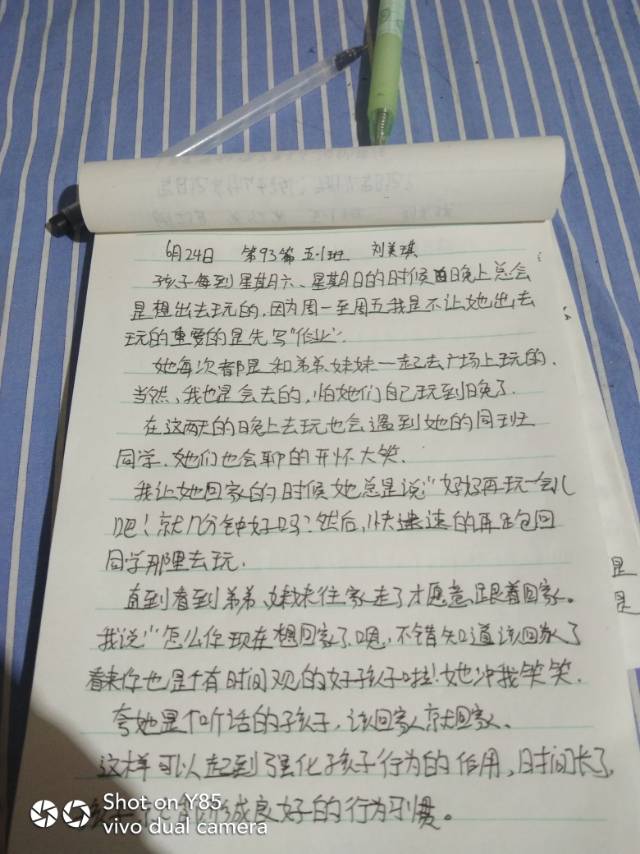 6月24日 第93篇 五(1)班 刘美琪
孩子每到星期六、星期日的时候晚上总会
是想出去玩的,因为周一至周五我是不让她出去
玩的重要的是先写"作业".
她每次都是和弟弟、妹妹一起去广场上玩的.
当然、我也是会去的,怕她们自己玩到很晚了.
在这两天的晚上去玩也会遇到她的同班
同学.她们也会聊的开怀大笑.
我让她回家的时候她总是说"好好再玩一会儿
吧!就几分钟好吗?然后,快速的再跑回
同学那里去玩.
直到看到弟弟、妹妹往家走了才愿意跟着回家。
我说"怎么你现在想回家了,嗯,不错知道该回家了
看来你也是个有时间观的好孩子啦!她冲我笑笑.
夸她是个听话的孩子,该回家就回家、
这样可以起到强化孩子行为的作用,时间长了,
成良好的行为习惯。
是
是
Shot on Y85
vivo dual camera